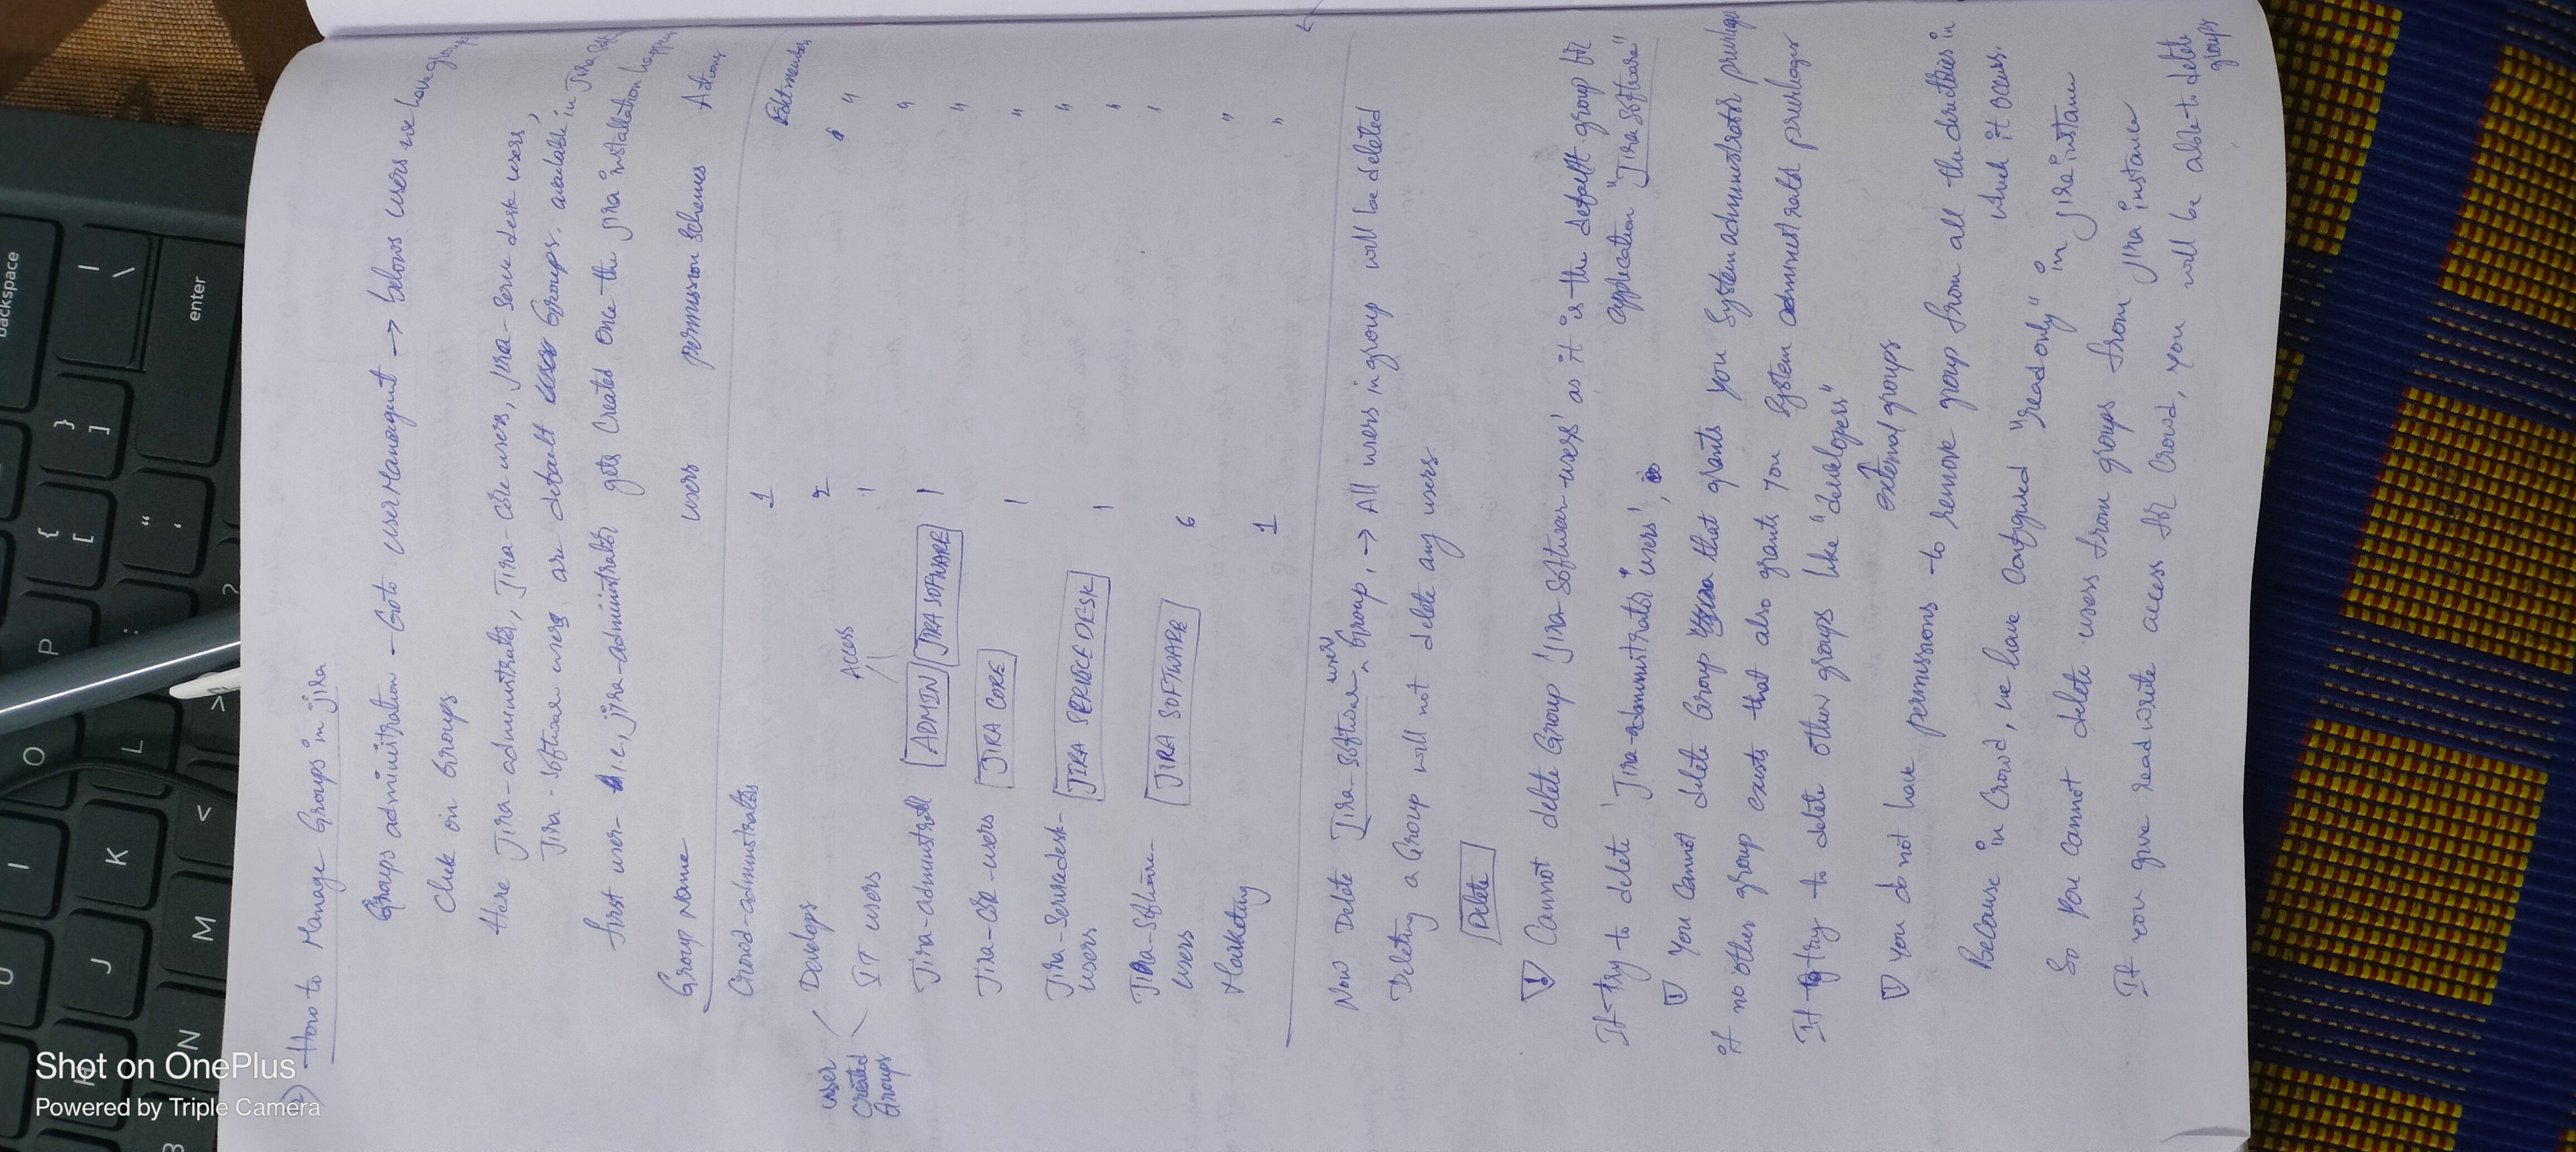 backspace
U I O P { [ } ] | \
J K L : “ ‘ enter
B N M < > ?
Shot on OnePlus
Powered by Triple Camera
How to Manage Groups in jira
Groups administration - Goto userManagent → below users we have groups
Click on Groups
Here Jira-administrator, Jira-Core users, Jira-Servie desk users,
Jira-Software users are default Groups. available in Jira Soft
first user- i.e., jira-administrator gets Created once the jira installation happens
Group Name users permission Schemes Actions
Crowd-administrators 1 Edit members
Develops 2 "
user Created Groups
IT users 1 "
Access
Jira-administrat ADMIN JIRA SOFWARE 1 "
Jira-COR-users JIRA CORE 1 "
Jira-Servicedesk- "
users JIRA SERVICE DESK 1 "
Jira-Software-
users JIRA SOFTWARE 6 "
Marketing 1 "
Now Delete Jira-Software users Group, → All users in group will be deleted
Deleting a Group will not delete any users.
Delete
! Cannot delete Group 'Jira-Software-users' as it is the default group for
application "Jira Software"
If try to delete 'Jira-administrator users',
! You Cannot delete Group that grants you System administrator privileges
if no other group exists that also grants you System administrator privileges
If try to delete other groups like "developers"
external groups
! you do not have permissions to remove group from all the directories in
which it occurs.
Because in Crowd, we have Configured "read only" in jira instance
So you cannot delete users from groups from jira instance
If you give read write access for Crowd, you will be able to delete
groups